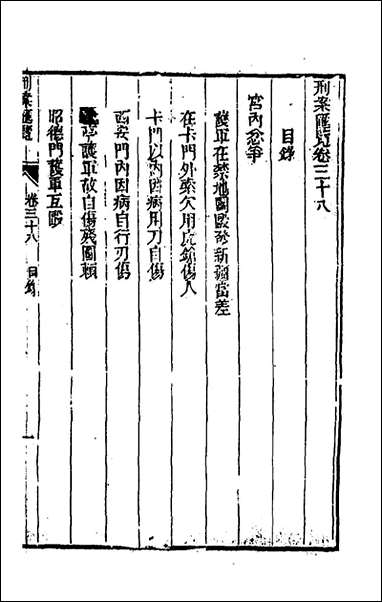 刑案匯覽卷三十八
目錄
宮內忿爭
護軍在禁地鬭毆發新疆當差
在卡門外索欠用虎鎗傷人
卡門以內因病用刀自傷
西安門內因病自行刃傷
亭護軍故自傷殘圖賴
昭德門護軍互毆
刑案匯覽 卷三十八 目錄